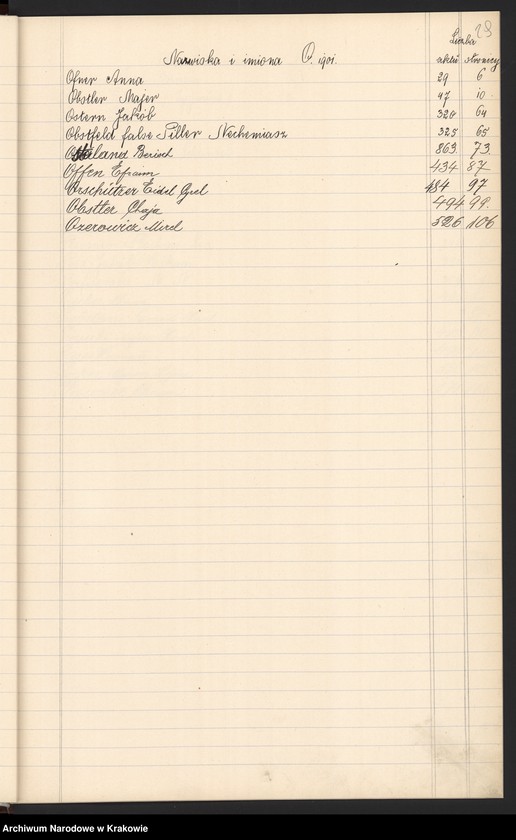 29
Liczba
Nazwiska i imiona O. 1901.
aktu stronicy
Ofner Anna 29 6
Obstler Majer 47 10
Ostern Jakób 320 64
Obstfeld false Piller Nechemiasz 325 65
Berisch 363 73
Offen Efraim 434 87
Orschützer Eidel Gzel 484 97
Obstler Chaja 494 99.
Ozerowicz Mirel 526 106
Archiwum Narodowe w Krakowie